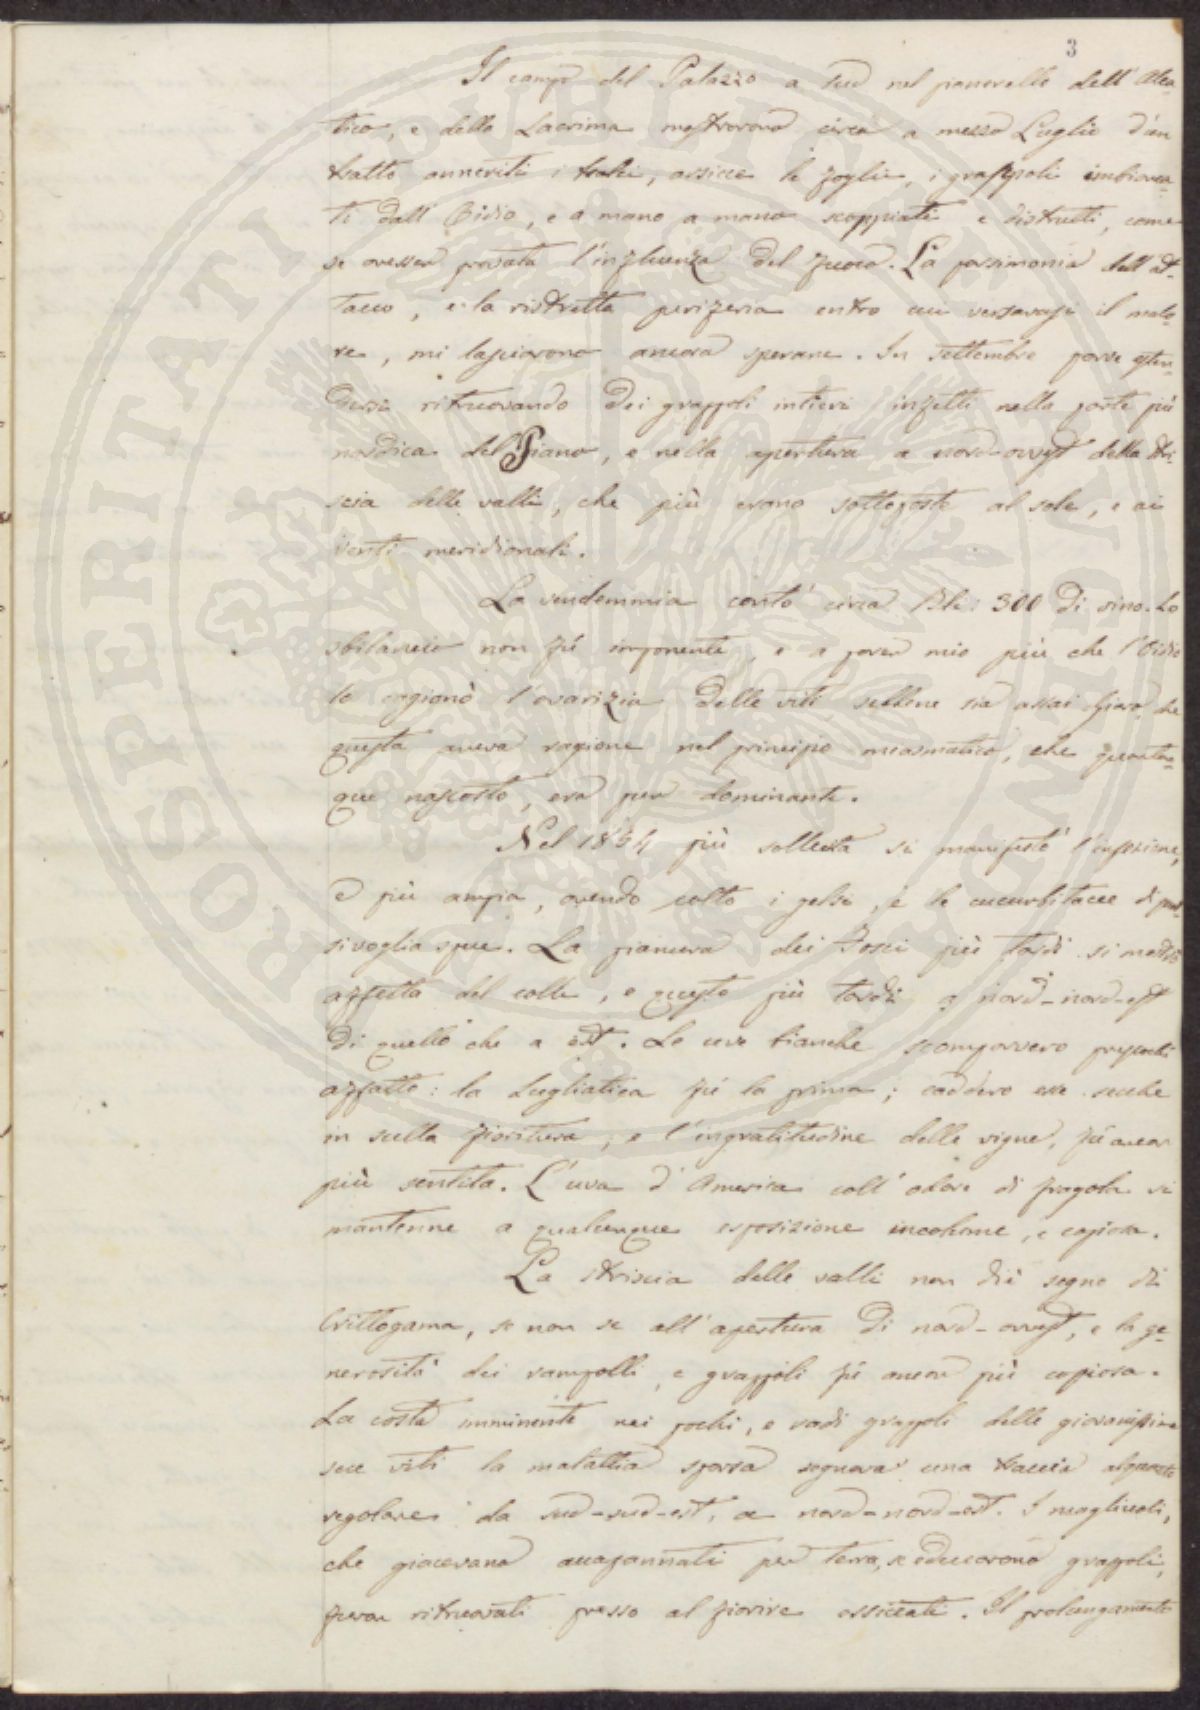 3
Il campo del Palazzo a sud nel pancrello dell'Alea-
tico, e della Lacrima mostrarono circa a mezzo Luglio d'un
tratto anneriti i tralci, assicce le foglie, i grappoli imbianca-
ti dall'Oidio, e a mano a mano scoppiati e distrutti, come
se avesser provata l'influenza del fuoco. La parsimonia dell'at-
tacco, e la ristretta periferia entro cui versavasi il malo-
re, mi lasciarono ancora sperare. In settembre parve esten-
dersi ritruovando dei grappoli intieri infetti nella parte più
nordica del Piano, e nella apertura a nord-ovest della stri-
scia delle valli, che più erano sottoposte al sole, e ai
venti meridionali.
La vendemmia contò circa Bli: 300 di vino. Lo
sbilancio non fù imponente, e a parer mio più che l'Oidio
lo cagionò l'avarizia delle viti sebbene sia assai chiaro che
questa aveva ragione nel principio miasmatico, che quantun-
que nascosto, era pur dominante.
Nel 1854 più sollecita si manifestò l'infezione,
e più ampia, avendo colto i gelsi, e le cucurbitacee di qual-
sivoglia specie. La pianura dei Fosci più tardi si mostrò
affetta del colle, e questo più tardi a nord-nord-est
di quello che a est. Le uve bianche scomparvero pressochè
affatto: la Lugliatica fù la prima; caddero esse secche
in sulla fioritura, e l'ingratitudine delle vigne, fù ancor
più sentita. L'uva d'America coll'odore di fragola si
mantenne a qualunque esposizione incolume, e copiosa.
La striscia delle valli non diè segno di
Crittogama, se non se all'apertura di nord-ovest, e la ge-
nerosità dei rampolli, e grappoli fù ancor più copiosa.
La costa imminente nei pochi, e radi grappoli delle giovanissime
sue viti la malattia sparsa segnava una traccia alquanto
regolare da sud-sud-est, a nord-nord-est. I magliuoli,
che giacevano accapannati per terra, se educarono grappoli,
furon ritruovati presso al fiorire assiccati. Il prolungamento